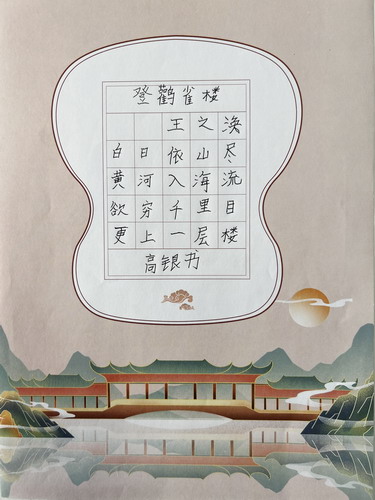 登鹳雀楼
王之涣
白日依山尽
黄河入海流
欲穷千里目
更上一层楼
高银书